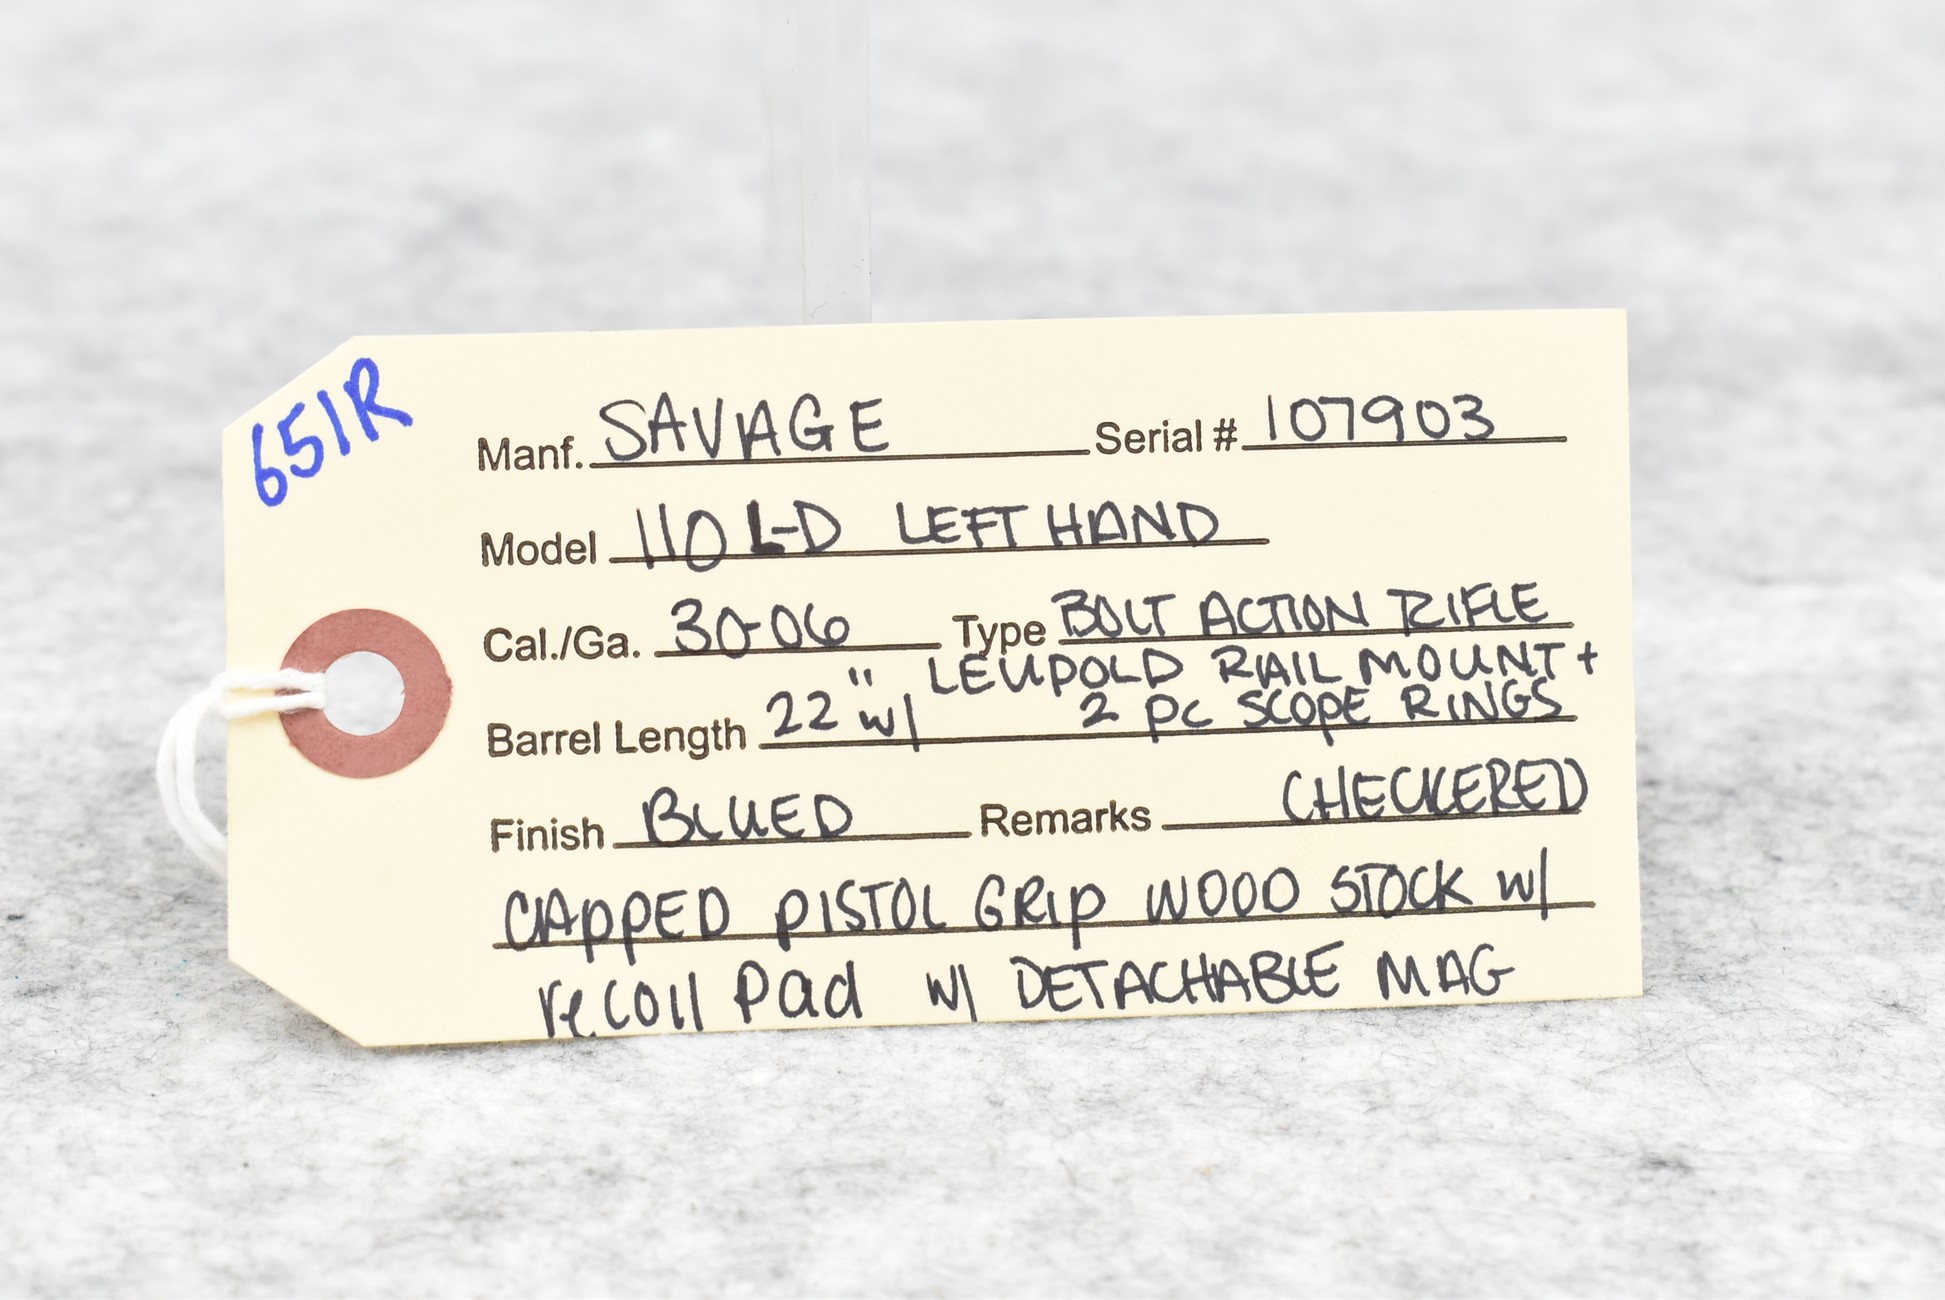 651R
Manf. SAVAGE Serial # 107903
Model 110 L-D LEFT HAND
Cal./Ga. 30-06 Type BOLT ACTION RIFLE
LEUPOLD RAIL MOUNT +
Barrel Length 22" w/ 2 PC SCOPE RINGS
Finish BLUED Remarks CHECKERED
CAPPED PISTOL GRIP WOOD STOCK w/
recoil Pad w/ DETACHABLE MAG